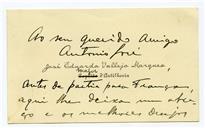 Ao seu querido Amigo
Antonio José
José Eduardo Vallejo Marques
Major
Capitão d'Artilharia
Antes de partir para França,
aqui lhe deixa um abra-
ço e os melhores desejos